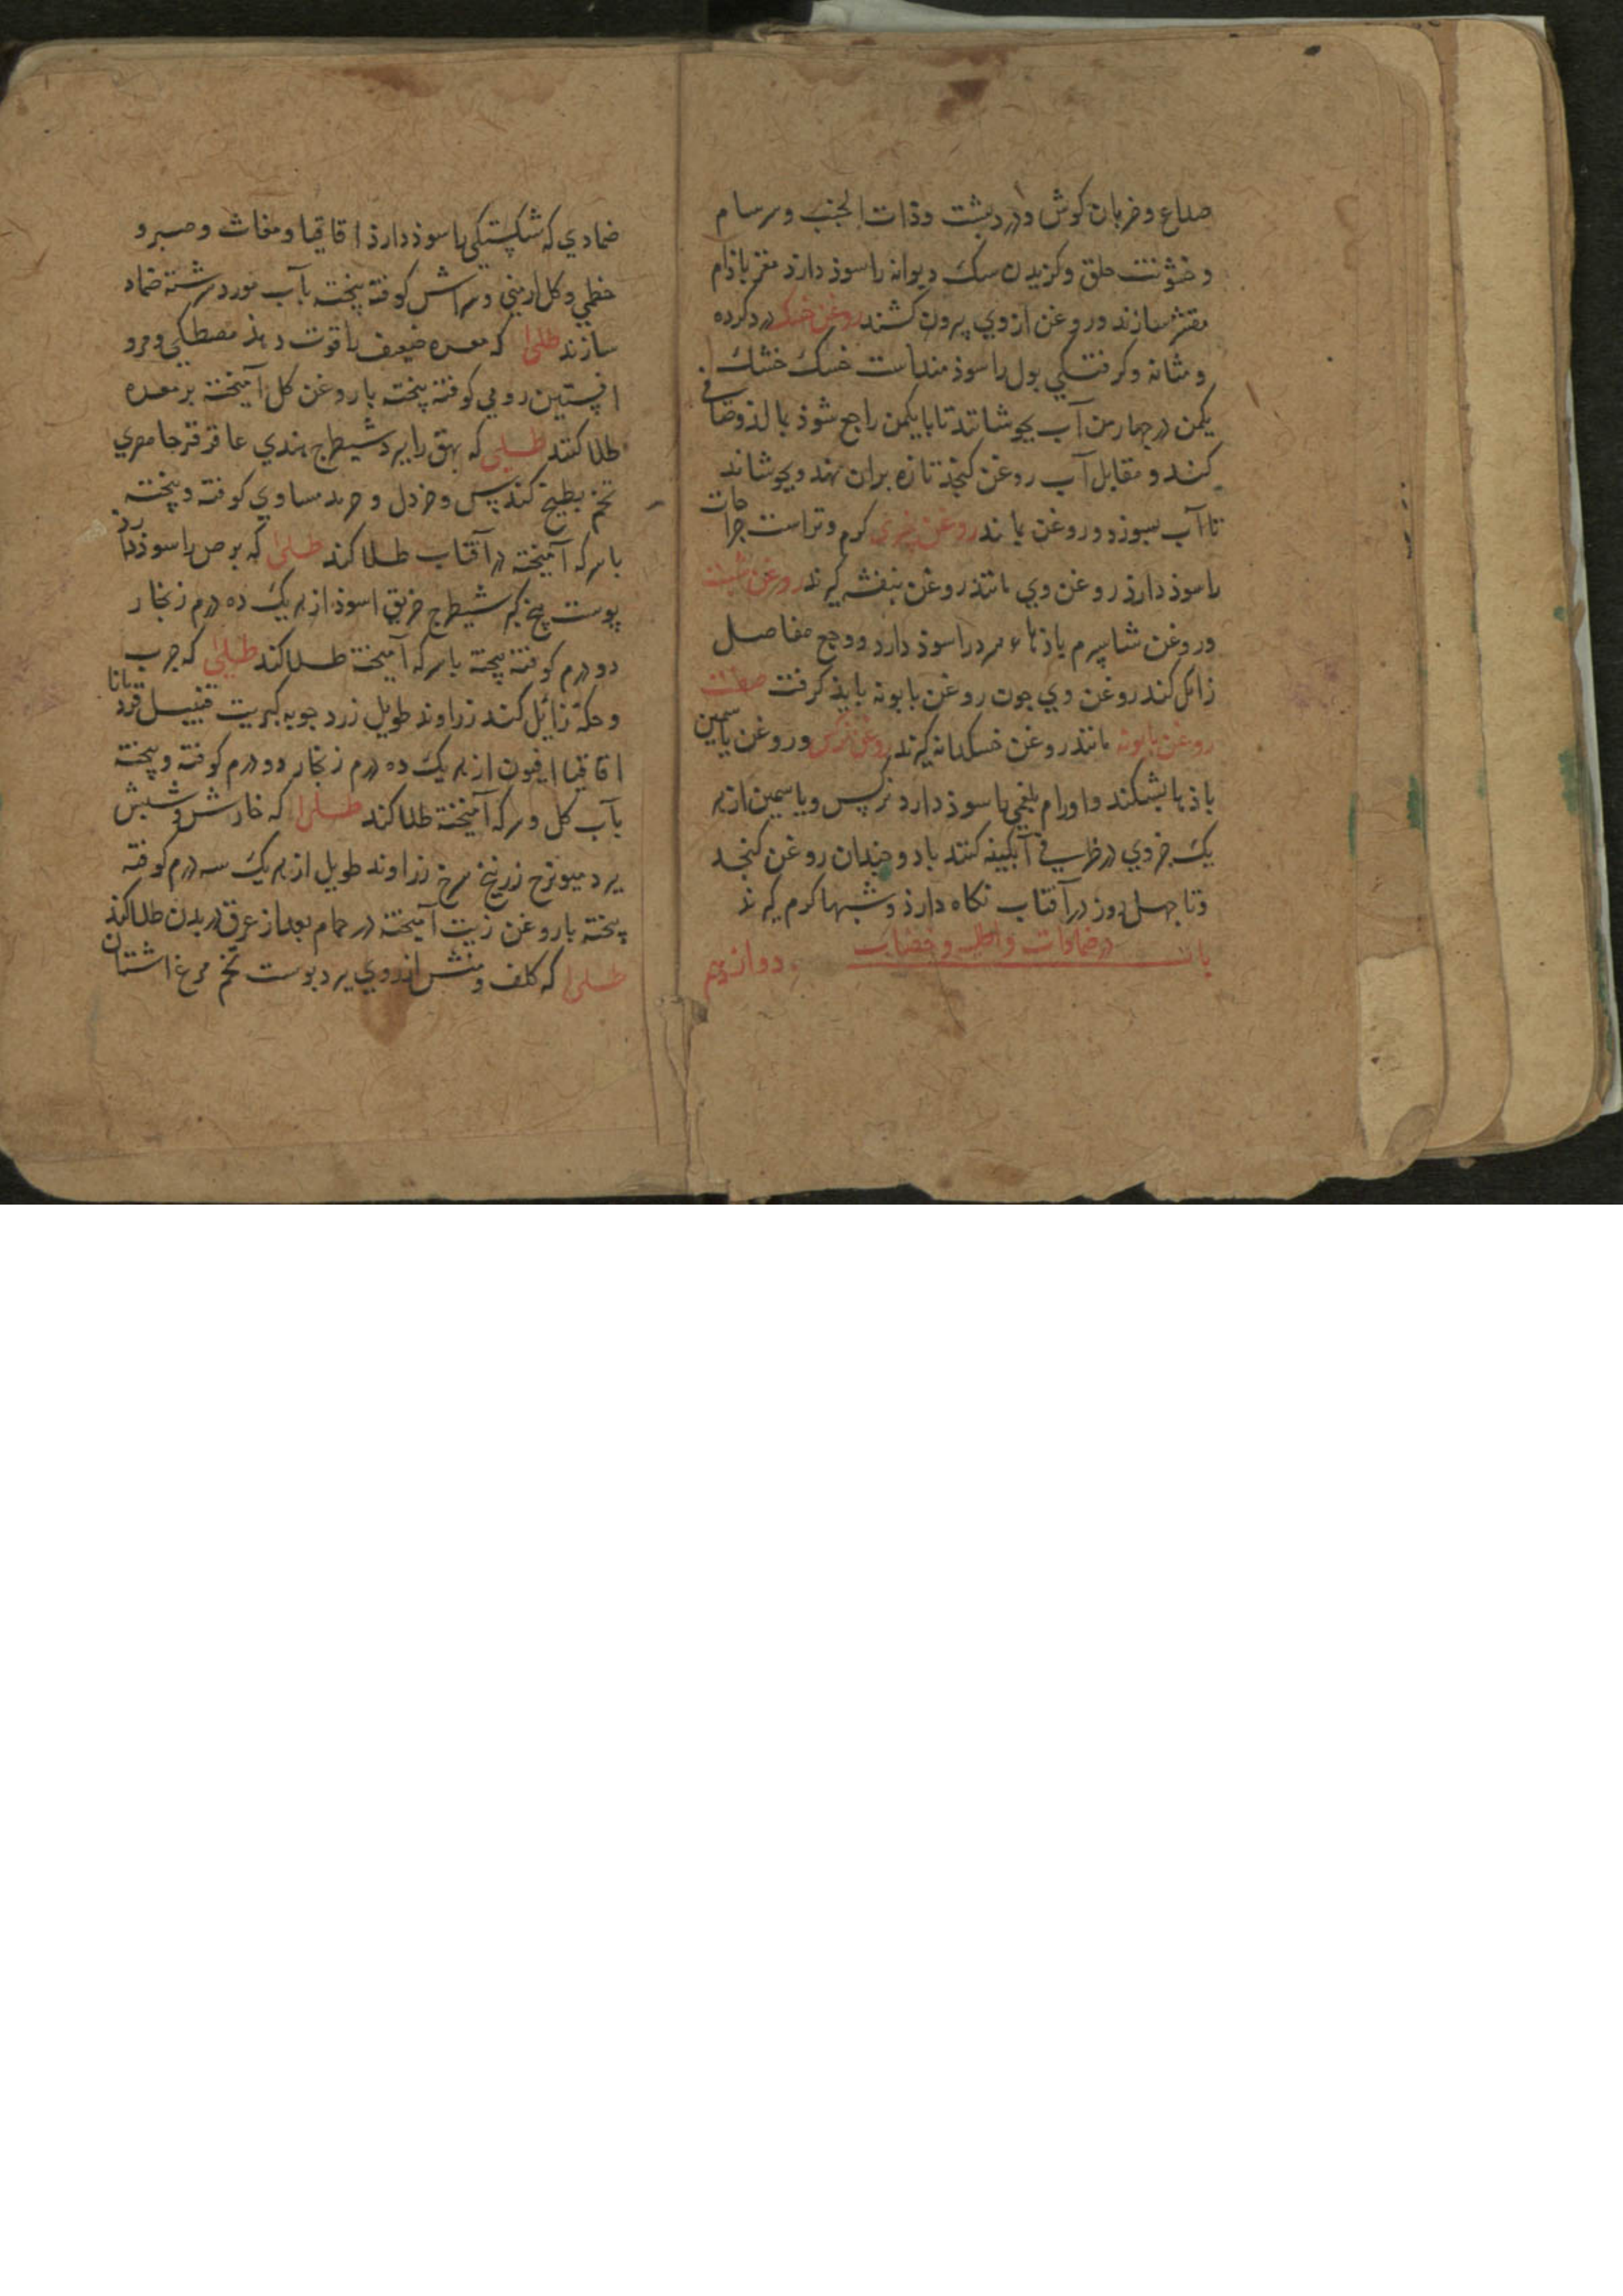 صداع وضربان کوش ودرد پشت وذات الجنب وسرسام
وخشونت حلق وکزیدن سک دیوانه راسوذ دارذ مغز باذام
مقشر سازند وروغن ازوی بیرون کشند روغن خسک درد کرده
ومثانه وکرفتکی بول راسوذ مند است خسک خشک
یکمن در چهار من آب بجوشانند تا بایکمن راجع شوذ بالذوصافی
کنند ومقابل آب روغن کنجذ تازه بران نهند وبجوشانند
تا آب بسوزد وروغن بماند روغن خیری کرم وتراست جراحات
راسوذ دارذ روغن وی مانند روغن بنفشه کیرند روغن شبت
وروغن شاسپرم باذهاء سرد راسوذ دارد ووجع مفاصل
زائل کند روغن وی چون روغن بابونه بایذ کرفت صفت
روغن بابونه مانند روغن خسکدانه کیرند روغن نرکس وروغن یاسمین
باذها بشکند واورام بلغمی راسوذ دارد نرکس ویاسمین از هر
یک جزوی در ظرفی آبکینه کنند با دو چندان روغن کنجد
وتا چهل روز در آفتاب نکاه دارذ وشبها کرم کیرند
باب دوازدهم در ضمادات واطلیه وخضاب
ضمادی که شکستکی راسوذ دارذ اقاقیا ومغاث وصبر و
خطمی وکل ارمنی وسراش کوفته بیخته بآب مورد سرشته ضماد
سازند طلی که معده ضعیف راقوت دهذ مصطکی ومرو
افسنتین رومی کوفته بیخته با روغن کل آمیخته بر معده
طلا کنند طلی که بهق راببرد شیطرج هندی عاقرقرحا مصری
تخم بطیخ کندس وخردل وحرمد مساوی کوفته وبیخته
باسرکه آمیخته در آفتاب طلا کند طلی که برص راسوذ دارد
پوست بیخ کبر شیطرج خربق اسوذ از هر یک ده درم زنجار
دو درم کوفته بیخته باسرکه آمیخته طلا کند طلی که جرب
وحکه زائل کند زراوند طویل زرد چوبه کبریت قنبیل قردمانا
اقاقیا افیون از هر یک ده درم زنجار دو درم کوفته وبیخته
بآب کل وسرکه آمیخته طلا کند طلی که خارش وشبش
ببرد میویزج زرنیخ سرخ زراوند طویل از هر یک سه درم کوفته
بیخته با روغن زیت آمیخته در حمام بعد از عرق در بدن طلا کند
طلی که کلف ومنش از روی ببرد پوست تخم مرغ اشتان